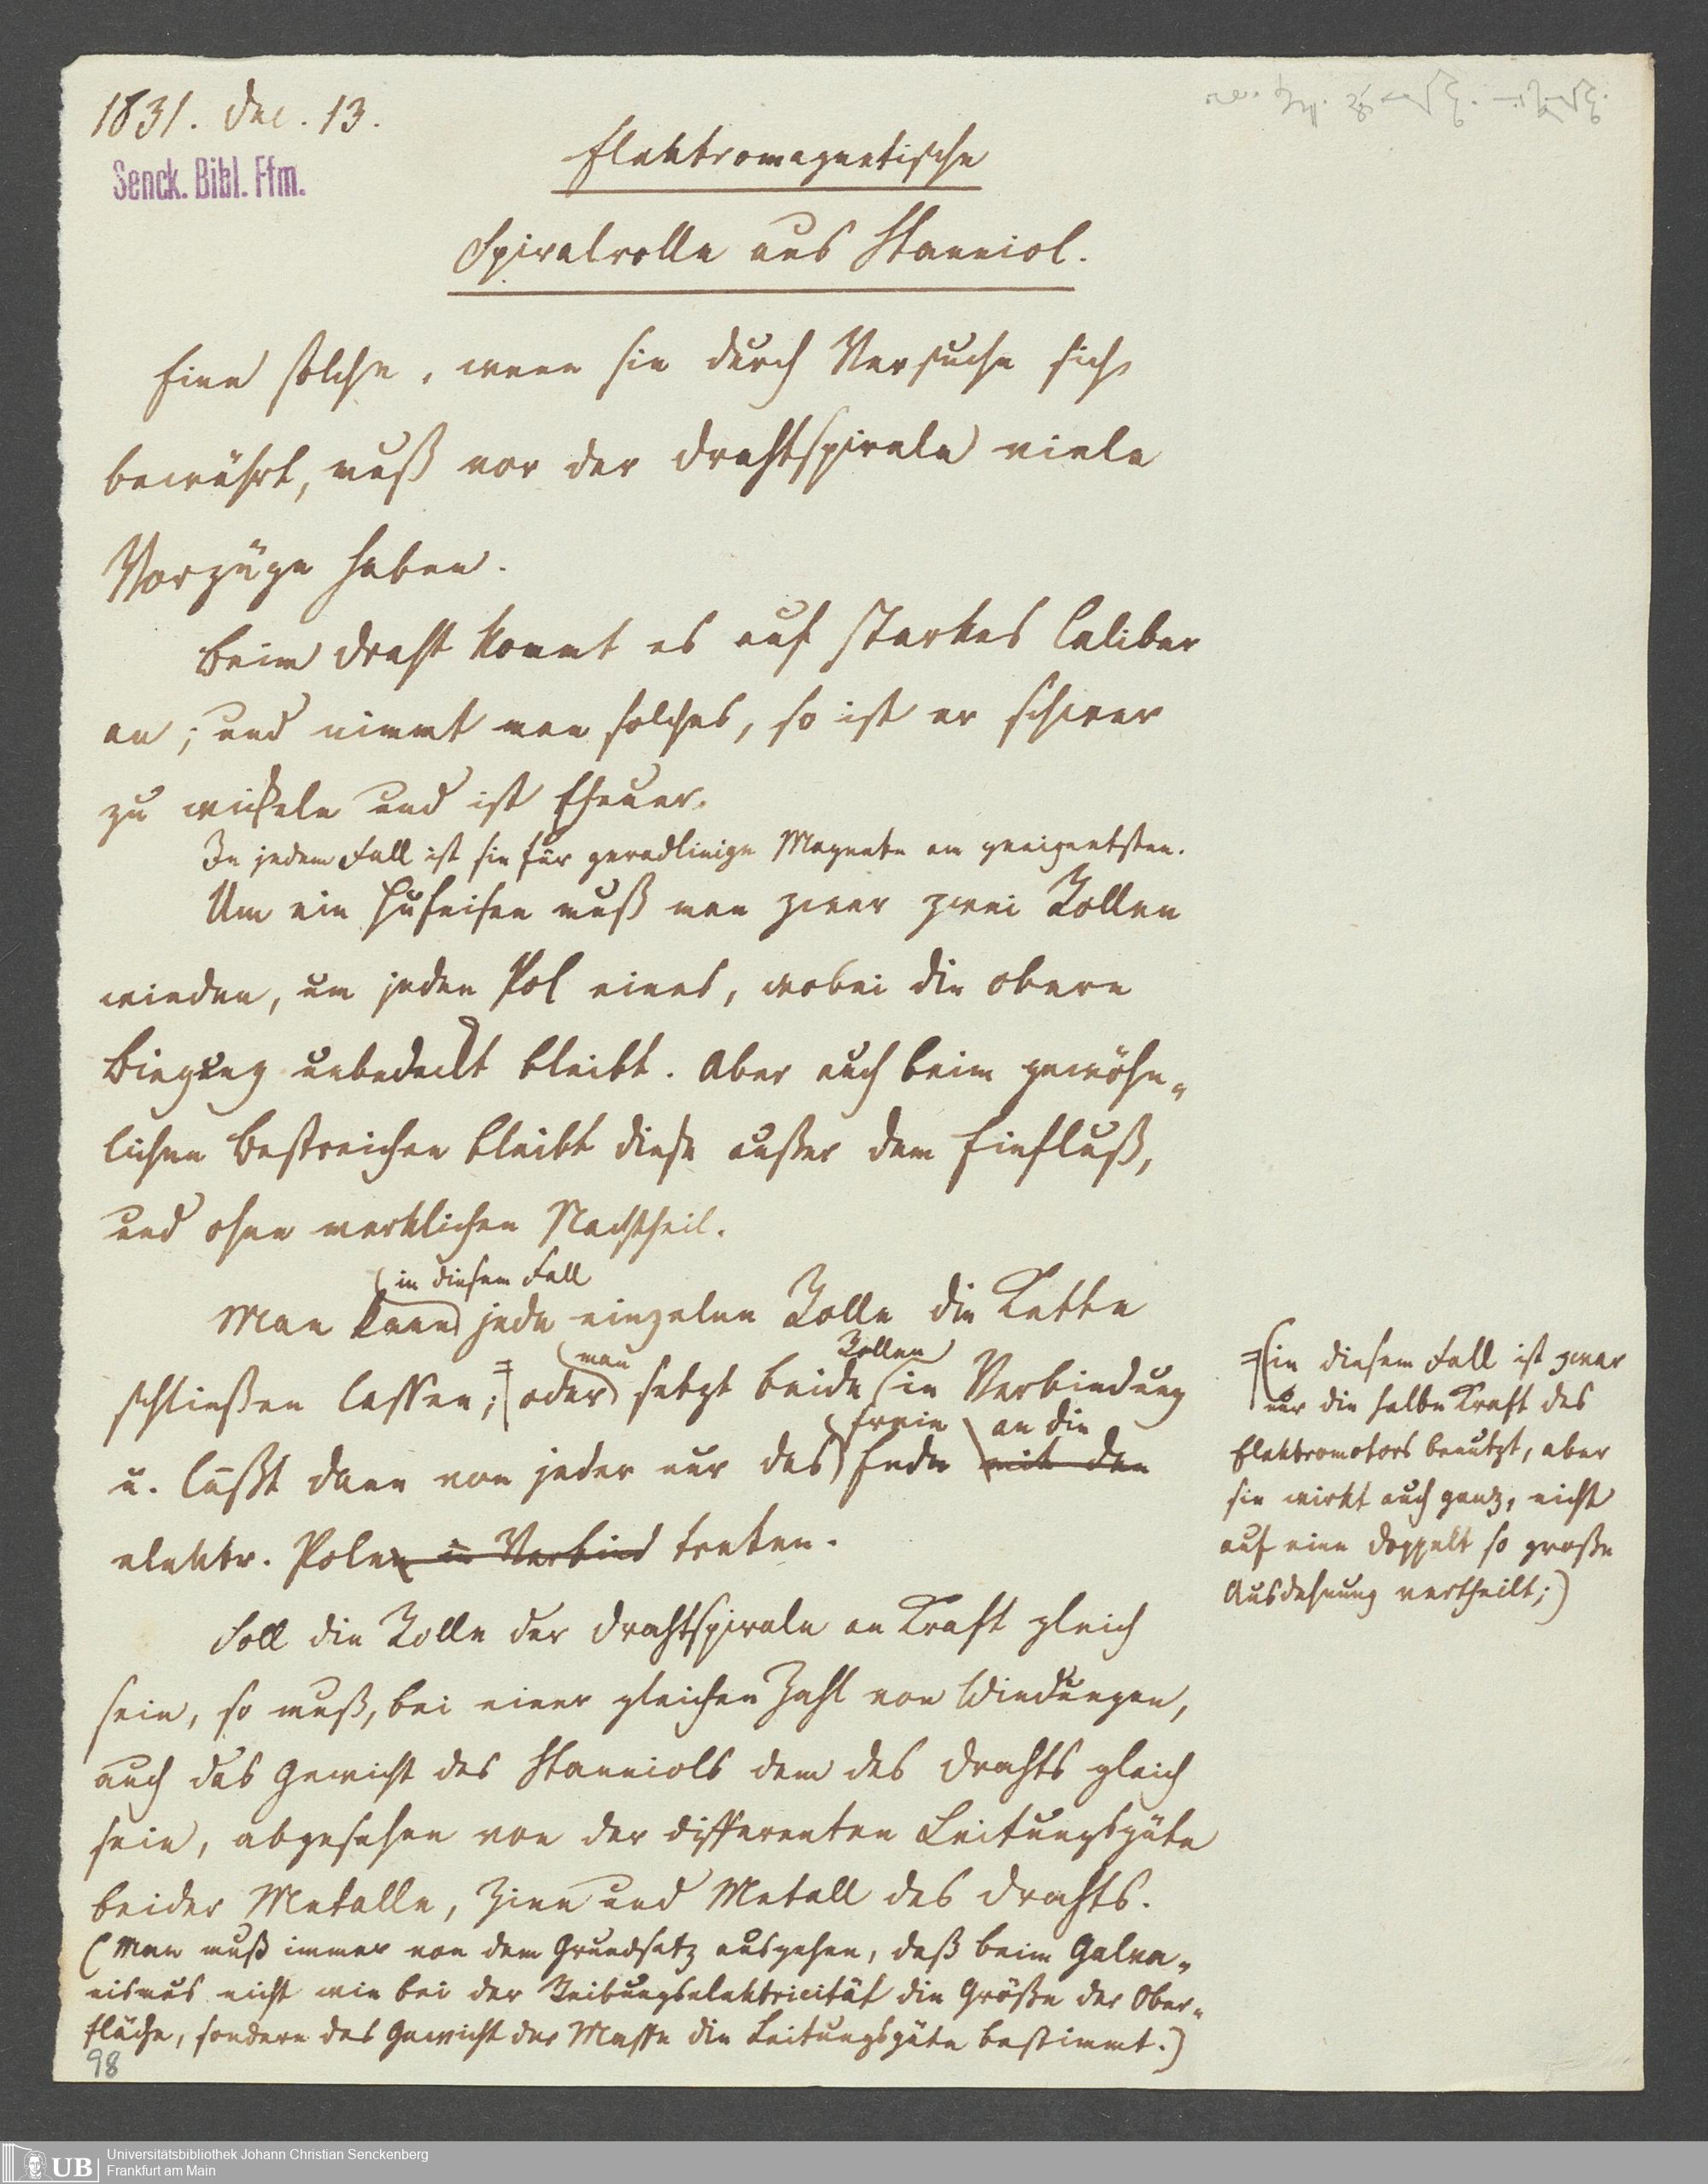 1831. Dec. 13.
Senck. Bibl. Ffm.
Elektromagnetische
Spiralrolle aus Stanniol.
Eine solche, wenn sie durch Versuche sich
bewährt, muß vor der Drahtspirale viele
Vorzüge haben.
Beim Draht kommt es auf starkes Caliber
an; und nimmt man solches, so ist er schwer
zu wickeln und ist theuer.
In jedem Fall ist sie für geradlinige Magnete am geeignetsten.
Um ein Hufeisen muß man zwar zwei Rollen
winden, um jeden Pol eines, wobei die obere
Biegung unbedeckt bleibt. Aber auch beim gewöhn-
lichen Bestreichen bleibt diese außer dem Einfluß,
und ohne merklichen Nachtheil.
in diesem Fall
Man kann jede einzelne Rolle die Kette
man Rollen
schließen lassen; oder setzt beide in Verbindung
freie an die
u. läßt dann von jeder nur das Ende mit den
elektr. Polen in Verbind treten.
Soll die Rolle der Drahtspirale an Kraft gleich
sein, so muß, bei einer gleichen Zahl von Windungen,
auch das Gewicht des Stanniols dem des Drahts gleich
sein, abgesehen von der differenten Leitungsgüte
beider Metalle, Zinn und Metall des Drahts.
(Man muß immer von dem Grundsatz ausgehen, daß beim Galva-
nismus nicht wie bei der Reibungselektricität die Größe der Ober-
fläche, sondern das Gewicht der Masse die Leitungsgüte bestimmt.)
98
=(in diesem Fall ist zwar
nur die halbe Kraft des
Elektromotors benutzt, aber
sie wirkt auch ganz, nicht
auf eine doppelt so große
Ausdehnung vertheilt;)
UB Universitätsbibliothek Johann Christian Senckenberg
Frankfurt am Main